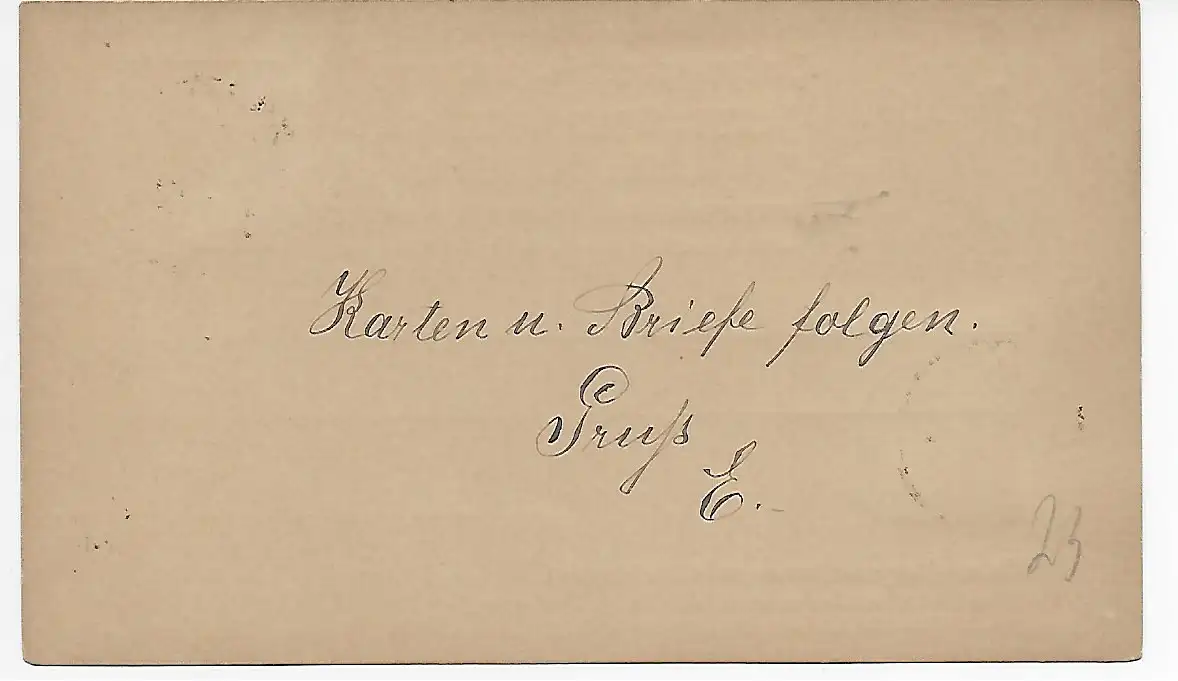 Karten u. Briefe folgen.
Gruß
E.